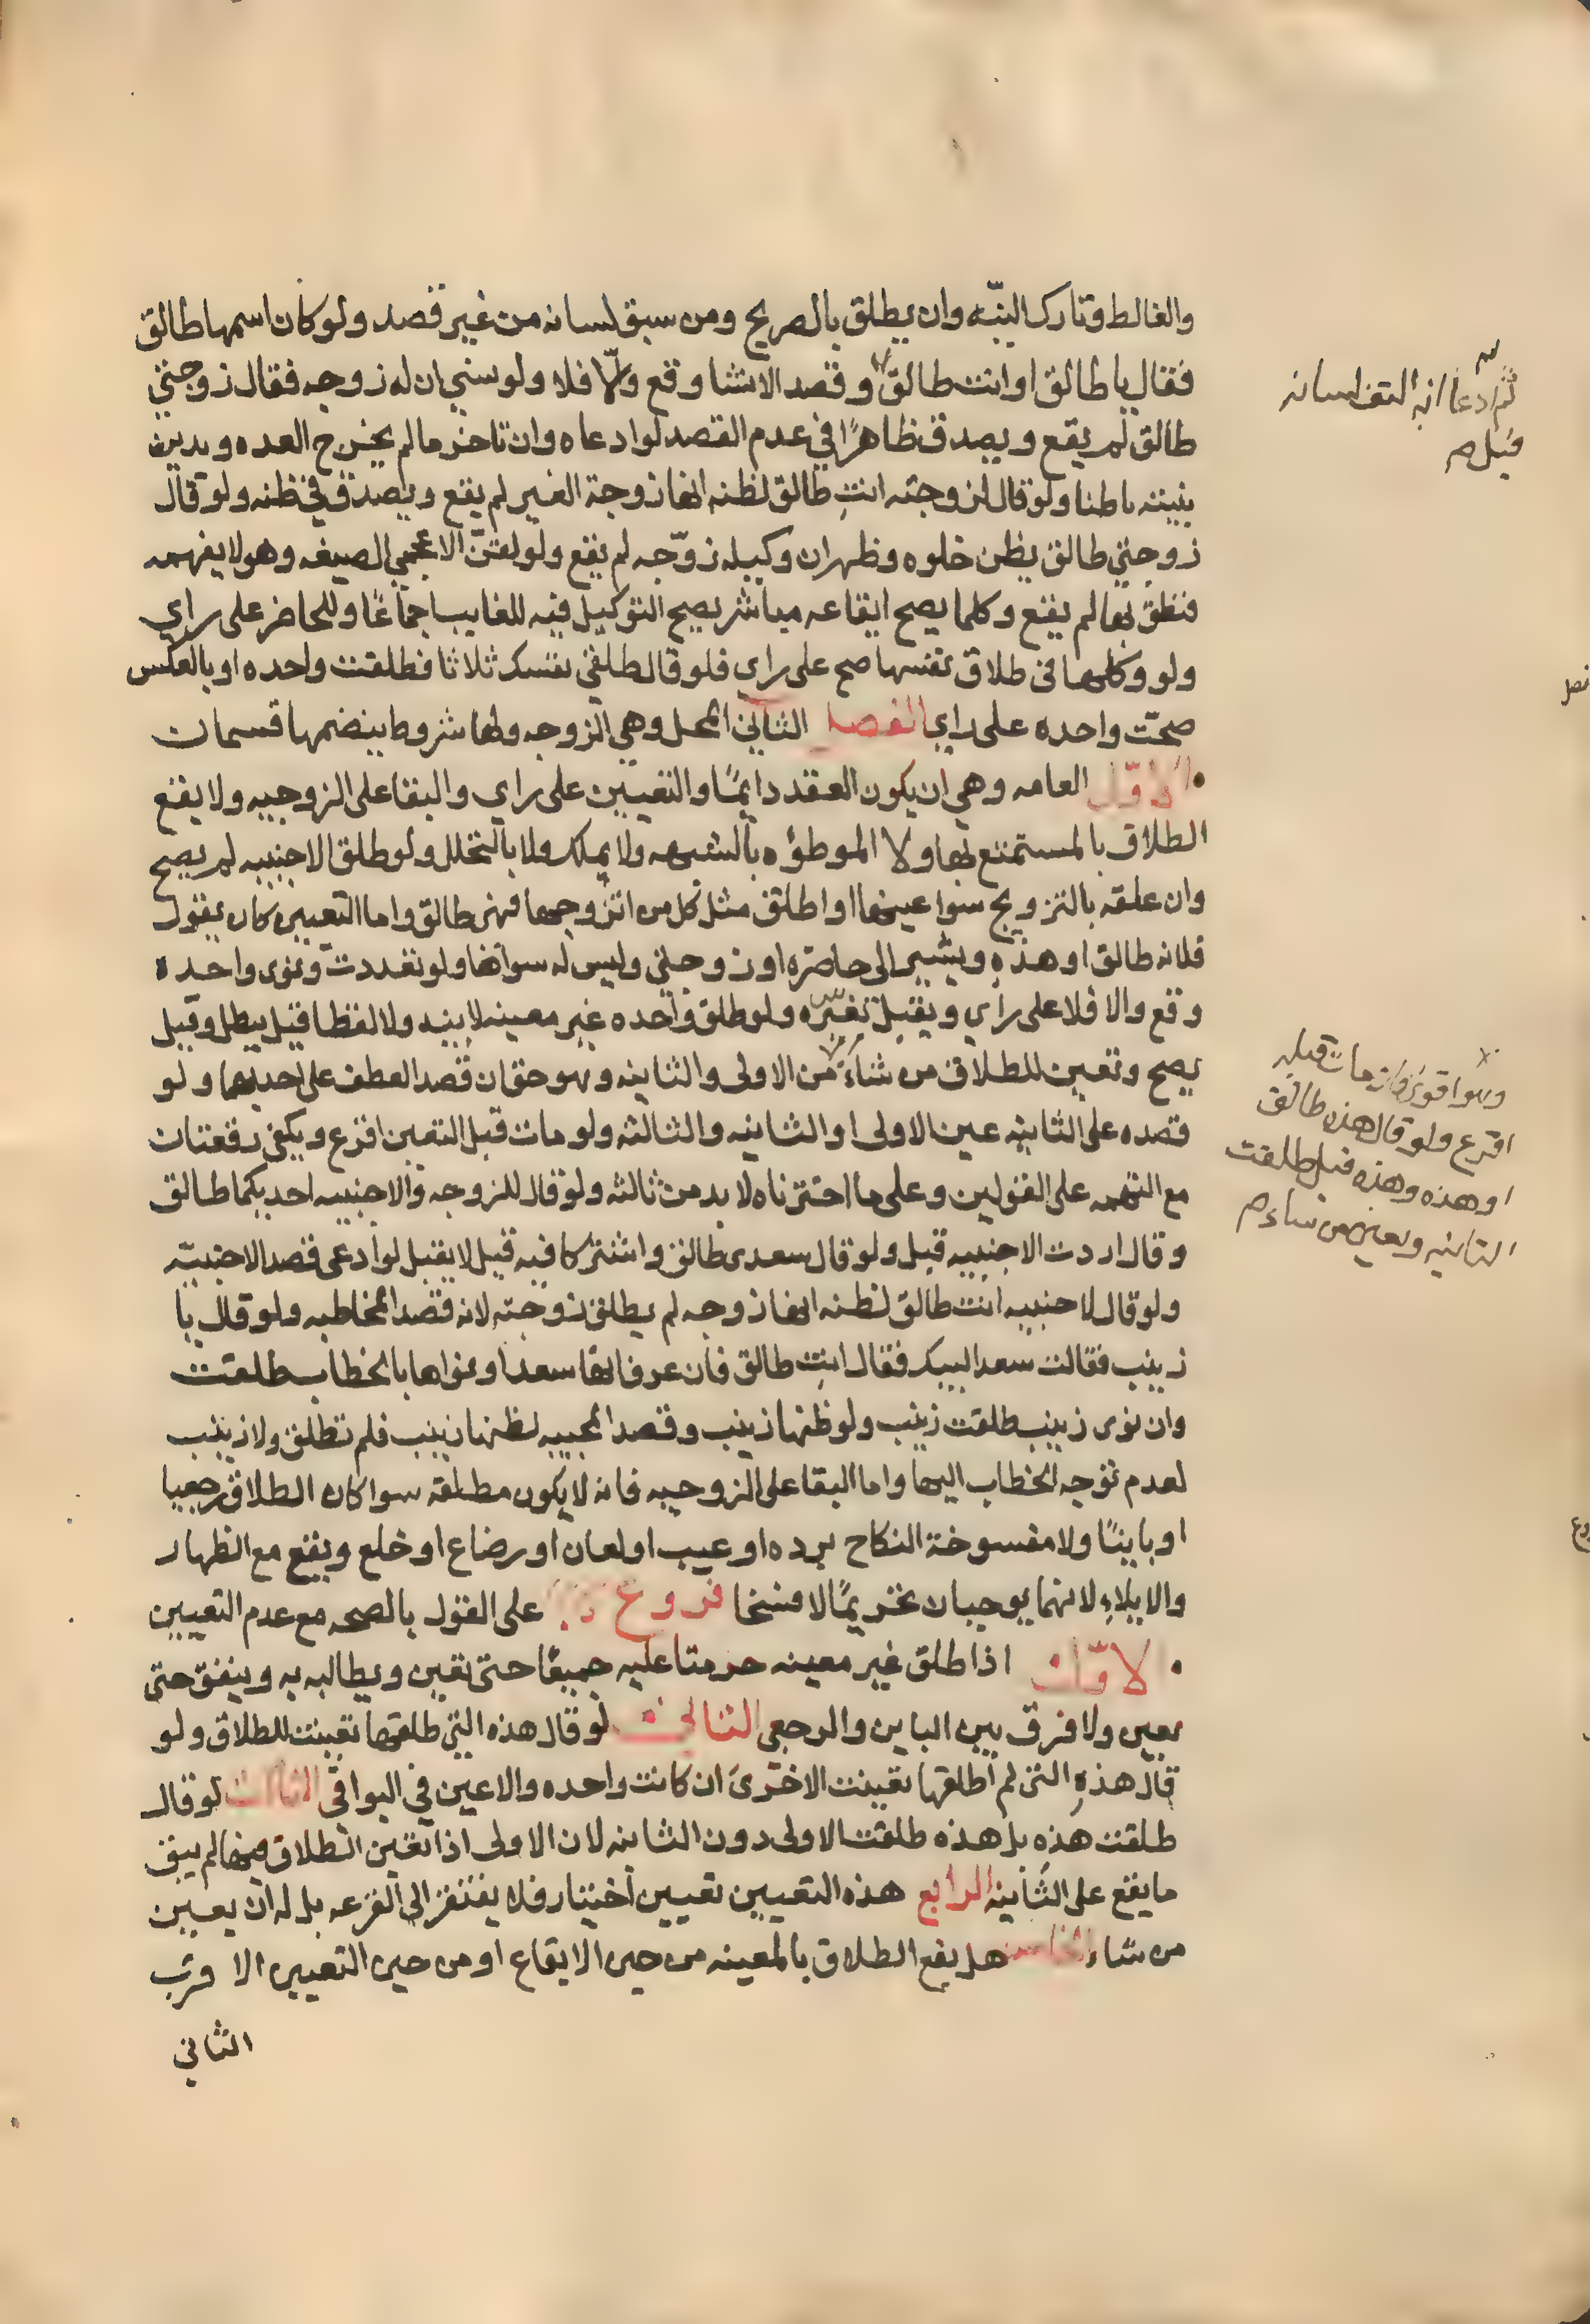 والغالط وتارك النيّه وان يطلق بالصريح ومن سبق لسانه من غير قصد ولو كان اسمها طالق
فقال يا طالق او انت طالق وقصد الانشا وقع والّا فلا ولو نسي ان له زوجه فقال زوجتي
طالق لم يقع ويصدق ظاهرًا في عدم القصد لو ادعاه وان تاخر ما لم يخرج العده ويدين
بنيته باطنا ولو قال لزوجته انتِ طالق لظنه انها زوجة الغير لم يقع ويصدق في ظنه ولو قال
زوجتي طالق يظن خلوه وظهر ان وكيله زوّجه لم يقع ولو لقّن الاعجمي الصيغه وهو لا يفهمه
فنطق بها لم يقع وكلما يصح ايقاعه مباشر يصح التوكيل فيه للغايب اجماعًا وللحاضر على راي
ولو وكلها في طلاق نفسها صح على راي فلو قال طلقي نفسك ثلاثا فطلقت واحده او بالعكس
صحّت واحده على راي الفصل الثاني المحل وهي الزوجه ولها شروط ينضمها قسمان
الاوّل العامه وهي ان يكون العقد دايمًا والتعيين على راي والبقا على الزوجيه ولا يقع
الطلاق بالمستمتع بها ولا الموطؤه بالشبهه ولا بملك ولا بالتحلل ولو طلق الاجنبيه لم يصح
وان علقه بالتزويج سوا عينها او اطلق مثل كل من اتزوجها فهي طالق واما التعيين كان يقول
فلانه طالق او هذه ويشير الى حاضره او زوجتي وليس له سواها ولو تعددت ونوى واحده
وقع والا فلا على راي ويقبل تفسيره ولو طلق واحده غير معينه لا نيه ولا لفظا قيل يبطل وقيل
يصح وتعيين للطلاق من شاء من الاولى والثانيه وهو حق ان قصد العطف على احديهما ولو
قصده على الثانيه عين الاولى او الثانيه والثالثه ولو مات قبل التعين اقرع ويكفي رقعتان
مع التهمه على القولين وعلى ما اخترناه لا بد من ثالثه ولو قال للزوجه والاجنبيه احديكما طالق
وقال اردت الاجنبيه قبل ولو قال سعدى طالق واشتركا فيه قيل لا يقبل لو ادعى قصد الاجنبيّه
ولو قال لاجنبيه انت طالق لظنه انها زوجه لم يطلق زوجته لانه قصد المخاطبه ولو قال يا
زينب فقالت سعد لبيك فقال انتِ طالق فان عرف انها سعدا ونواها بالخطاب طلقت
وان نوى زينب طلقت زينب ولو ظنها زينب وقصد المجيبه لظنها زينب فلم تطلق ولا زينب
لعدم توجه الخطاب اليها واما البقا على الزوجيه فانه لا يكون مطلقه سوا كان الطلاق رجعيا
او باينًا ولا مفسوخة النكاح برده او عيب او لعان او رضاع او خلع ويقع مع الظهار
والايلاء لانهما يوجبان تحريمًا لا فسخا فروع على القول بالصحه مع عدم التعيين
الاوّل اذا طلق غير معينه حرمتا عليه جميعًا حتى تعين ويطالبه به وينفق حتى
يعين ولا فرق بين الباين والرجعي الثاني لو قال هذه التي طلقتها تعينت للطلاق ولو
قال هذه التي لم اطلقها تعينت الاخرى ان كانت واحده والا عين في البواقي الثالث لو قال
طلقت هذه بل هذه طلقت الاولى دون الثانيه لان الاولى اذا تعين الطلاق فيها لم يبق
ما يقع على الثانيه الرابع هذه التعيين تعيين اختيار فلا يفتقر الى القرعه بل له ان يعين
من شاء الخامس هل يقع الطلاق بالمعينه من حين الايقاع او من حين التعيين الاقرب
الثاني
ثم ادعا انه التف لسانه
قبل صح
اقرع ولو قال هذه طالق
او هذه وهذه قيل طلقت
الثانيه ويعين من شاء صح